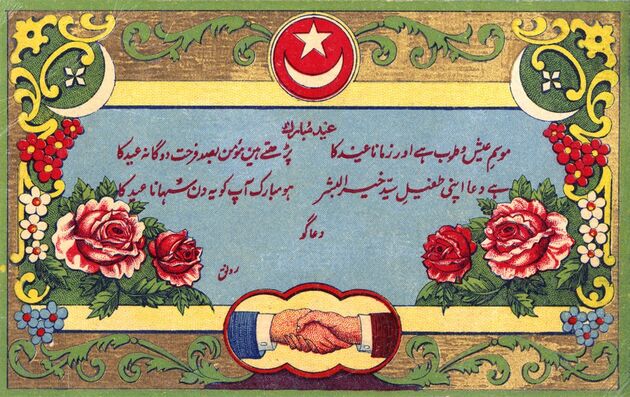 عید مبارک
موسم عیش و طرب ہے اور زمانا عید کا پڑھتے ہین مومن بصد فرحت دوگانہ عید کا
ہے دعا اپنی طفیلِ سیّد خیر البشر ہو مبارک آپ کو یہ دن سُہانا عید کا
دعاگو
رونق